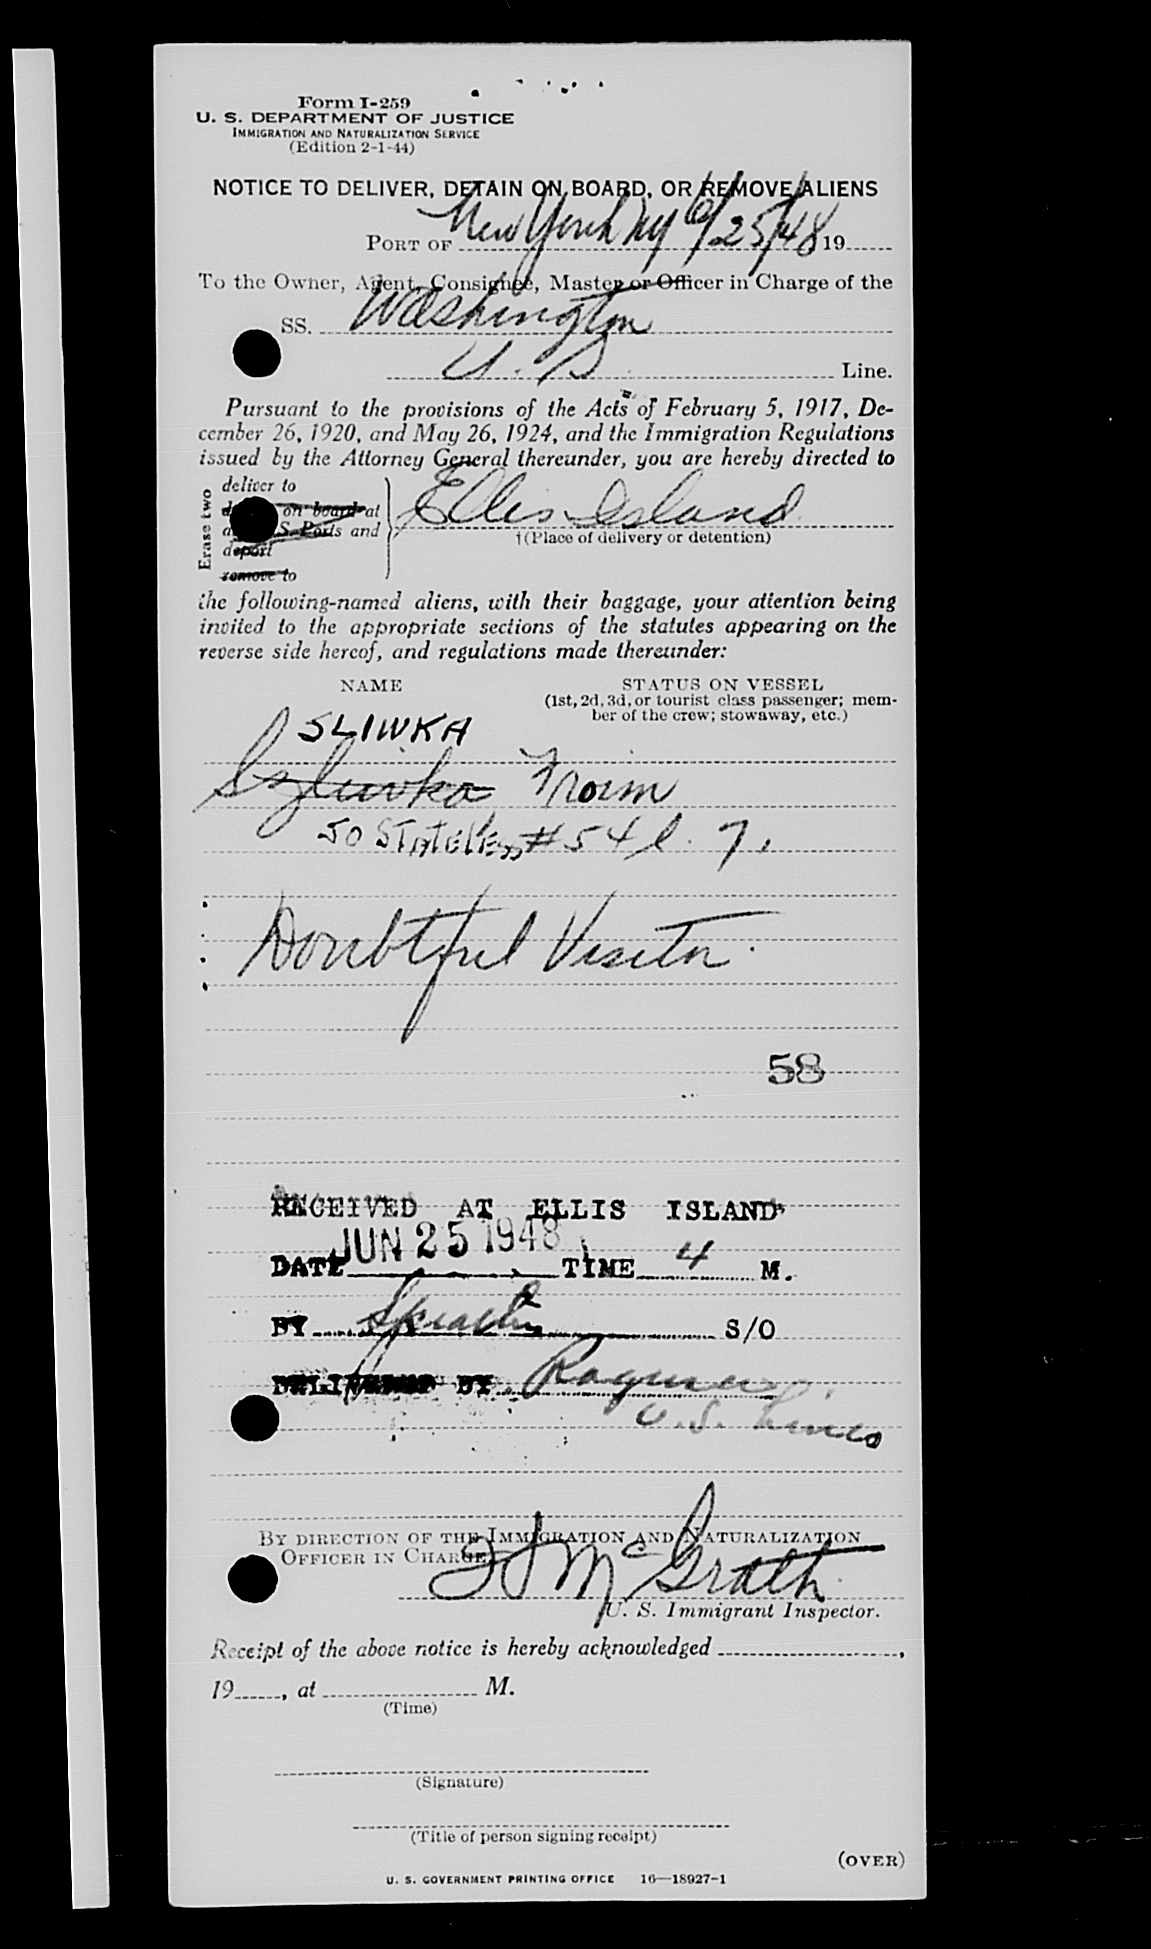 Form I-259
U. S. DEPARTMENT OF JUSTICE
IMMIGRATION AND NATURALIZATION SERVICE
(Edition 2-1-44)
NOTICE TO DELIVER, DETAIN ON BOARD, OR REMOVE ALIENS
PORT OF New York NY 6/25/48 19
To the Owner, Agent, Consignee, Master or Officer in Charge of the
SS. Washington
U. S. Line.
Pursuant to the provisions of the Acts of February 5, 1917, De-
cember 26, 1920, and May 26, 1924, and the Immigration Regulations
issued by the Attorney General thereunder, you are hereby directed to
Erase two
deliver to
on board at
S. Ports and
deport
remove to
Ellis Island
†(Place of delivery or detention)
the following-named aliens, with their baggage, your attention being
invited to the appropriate sections of the statutes appearing on the
reverse side hereof, and regulations made thereunder:
NAME STATUS ON VESSEL
(1st, 2d, 3d, or tourist class passenger; mem-
ber of the crew; stowaway, etc.)
SLIWKA
Szliwka Froim
50 STATELESS #54
Doubtful Visitor
58
RECEIVED AT ELLIS ISLAND
DATE JUN 25 1948 TIME 4 M.
BY S/O
DELIVERED BY
U. S. Lines
BY DIRECTION OF THE IMMIGRATION AND NATURALIZATION
OFFICER IN CHARGE
McGrath
U. S. Immigrant Inspector.
Receipt of the above notice is hereby acknowledged ,
19 , at M.
(Time)
(Signature)
(Title of person signing receipt)
(OVER)
U. S. GOVERNMENT PRINTING OFFICE 16—18927-1